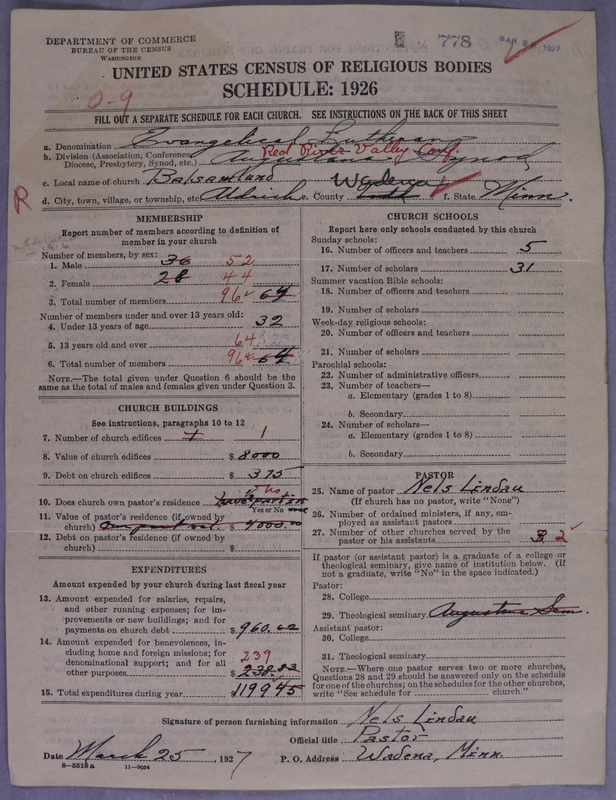 DEPARTMENT OF COMMERCE
BUREAU OF THE CENSUS
WASHINGTON
778
UNITED STATES CENSUS OF RELIGIOUS BODIES
SCHEDULE: 1926
0-9
FILL OUT A SEPARATE SCHEDULE FOR EACH CHURCH. SEE INSTRUCTIONS ON THE BACK OF THIS SHEET
a. Denomination Evangelical Lutheran
b. Division (Association, Conference, Diocese, Presbytery, Synod, etc.) Augustana Synod Red River Valley Conf.
c. Local name of church Balsamlund
R d. City, town, village, or township, etc. Aldrich e. County Wadena f. State Minn.
MEMBERSHIP
Report number of members according to definition of
member in your church
Number of members, by sex:
1. Male 36 52
2. Female 28 44
3. Total number of members 96 64
Number of members under and over 13 years old:
4. Under 13 years of age 32
5. 13 years old and over 64
6. Total number of members 96 64
NOTE.—The total given under Question 6 should be the
same as the total of males and females given under Question 3.
CHURCH BUILDINGS
See instructions, paragraphs 10 to 12
7. Number of church edifices 1 1
8. Value of church edifices $ 8000
9. Debt on church edifices $ 375
10. Does church own pastor's residence have part in one
Yes or No
11. Value of pastor's residence (if owned by
church) Our part out $ 4000.00
12. Debt on pastor's residence (if owned by
church) $
EXPENDITURES
Amount expended by your church during last fiscal year
13. Amount expended for salaries, repairs,
and other running expenses; for im-
provements or new buildings; and for
payments on church debt $ 960.62
14. Amount expended for benevolences, in-
cluding home and foreign missions; for
denominational support; and for all
other purposes $ 238.83 239
15. Total expenditures during year $ 1199 45
CHURCH SCHOOLS
Report here only schools conducted by this church
Sunday schools:
16. Number of officers and teachers 5
17. Number of scholars 31
Summer vacation Bible schools:
18. Number of officers and teachers
19. Number of scholars
Week-day religious schools:
20. Number of officers and teachers
21. Number of scholars
Parochial schools:
22. Number of administrative officers
23. Number of teachers—
a. Elementary (grades 1 to 8)
b. Secondary
24. Number of scholars—
a. Elementary (grades 1 to 8)
b. Secondary
PASTOR
25. Name of pastor Nels Lindau
(If church has no pastor, write "None")
26. Number of ordained ministers, if any, em-
ployed as assistant pastors
27. Number of other churches served by the
pastor or his assistants 3 2
If pastor (or assistant pastor) is a graduate of a college or
theological seminary, give name of institution below. (If
not a graduate, write "No" in the space indicated.)
Pastor:
28. College
29. Theological seminary Augustana Sem.
Assistant pastor:
30. College
31. Theological seminary
NOTE.—Where one pastor serves two or more churches,
Questions 28 and 29 should be answered only on the schedule
for one of the churches; on the schedules for the other churches,
write "See schedule for church."
Signature of person furnishing information Nels Lindau
Official title Pastor
Date March 25, 1927 P. O. Address Wadena, Minn.
8—5518 a 11—9054